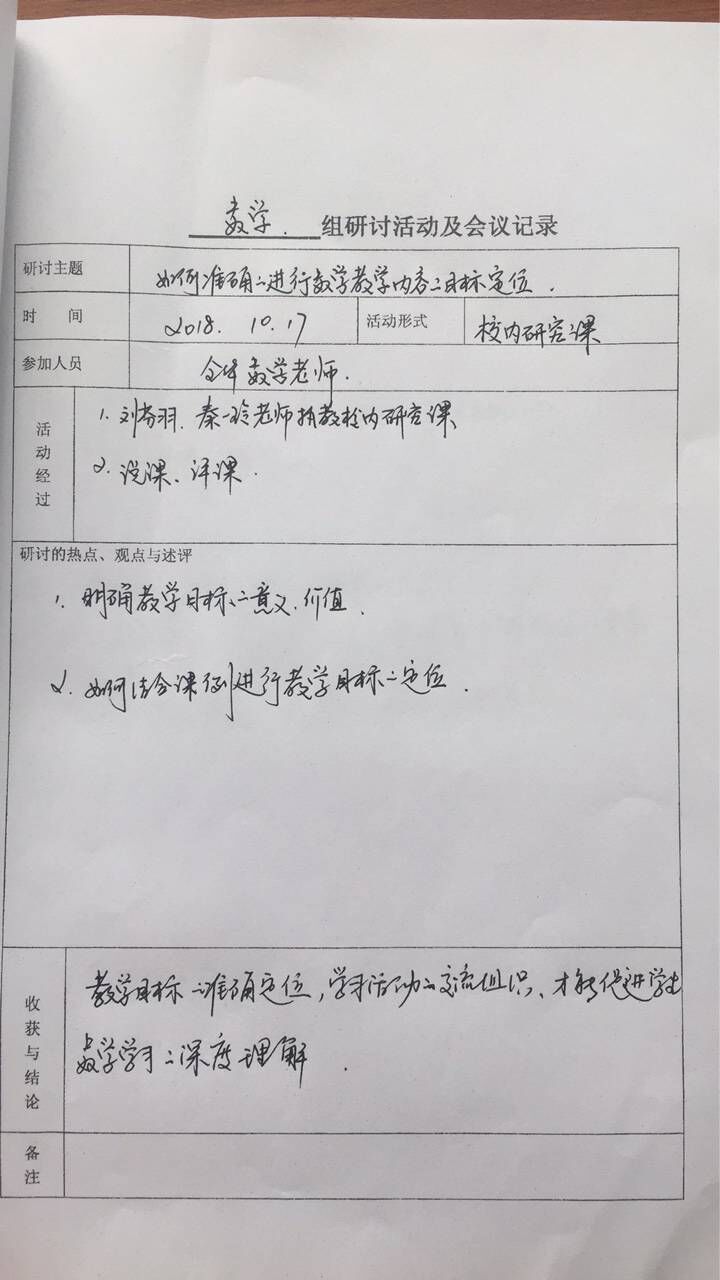 数学 组研讨活动及会议记录
研讨主题 如何准确的进行数学教学内容的目标定位.
时 间 2018. 10. 17 活动形式 校内研究课
参加人员 全体数学老师.
活动经过
1. 刘 羽、秦一玲老师执教校内研究课
2. 说课、评课.
研讨的热点、观点与述评
1. 明确教学目标的意义、价值.
2. 如何结合课例进行教学目标的定位.
收获与结论
教学目标的准确定位,学习活动的交流组织、才能促进学生
数学学习的深度理解.
备注